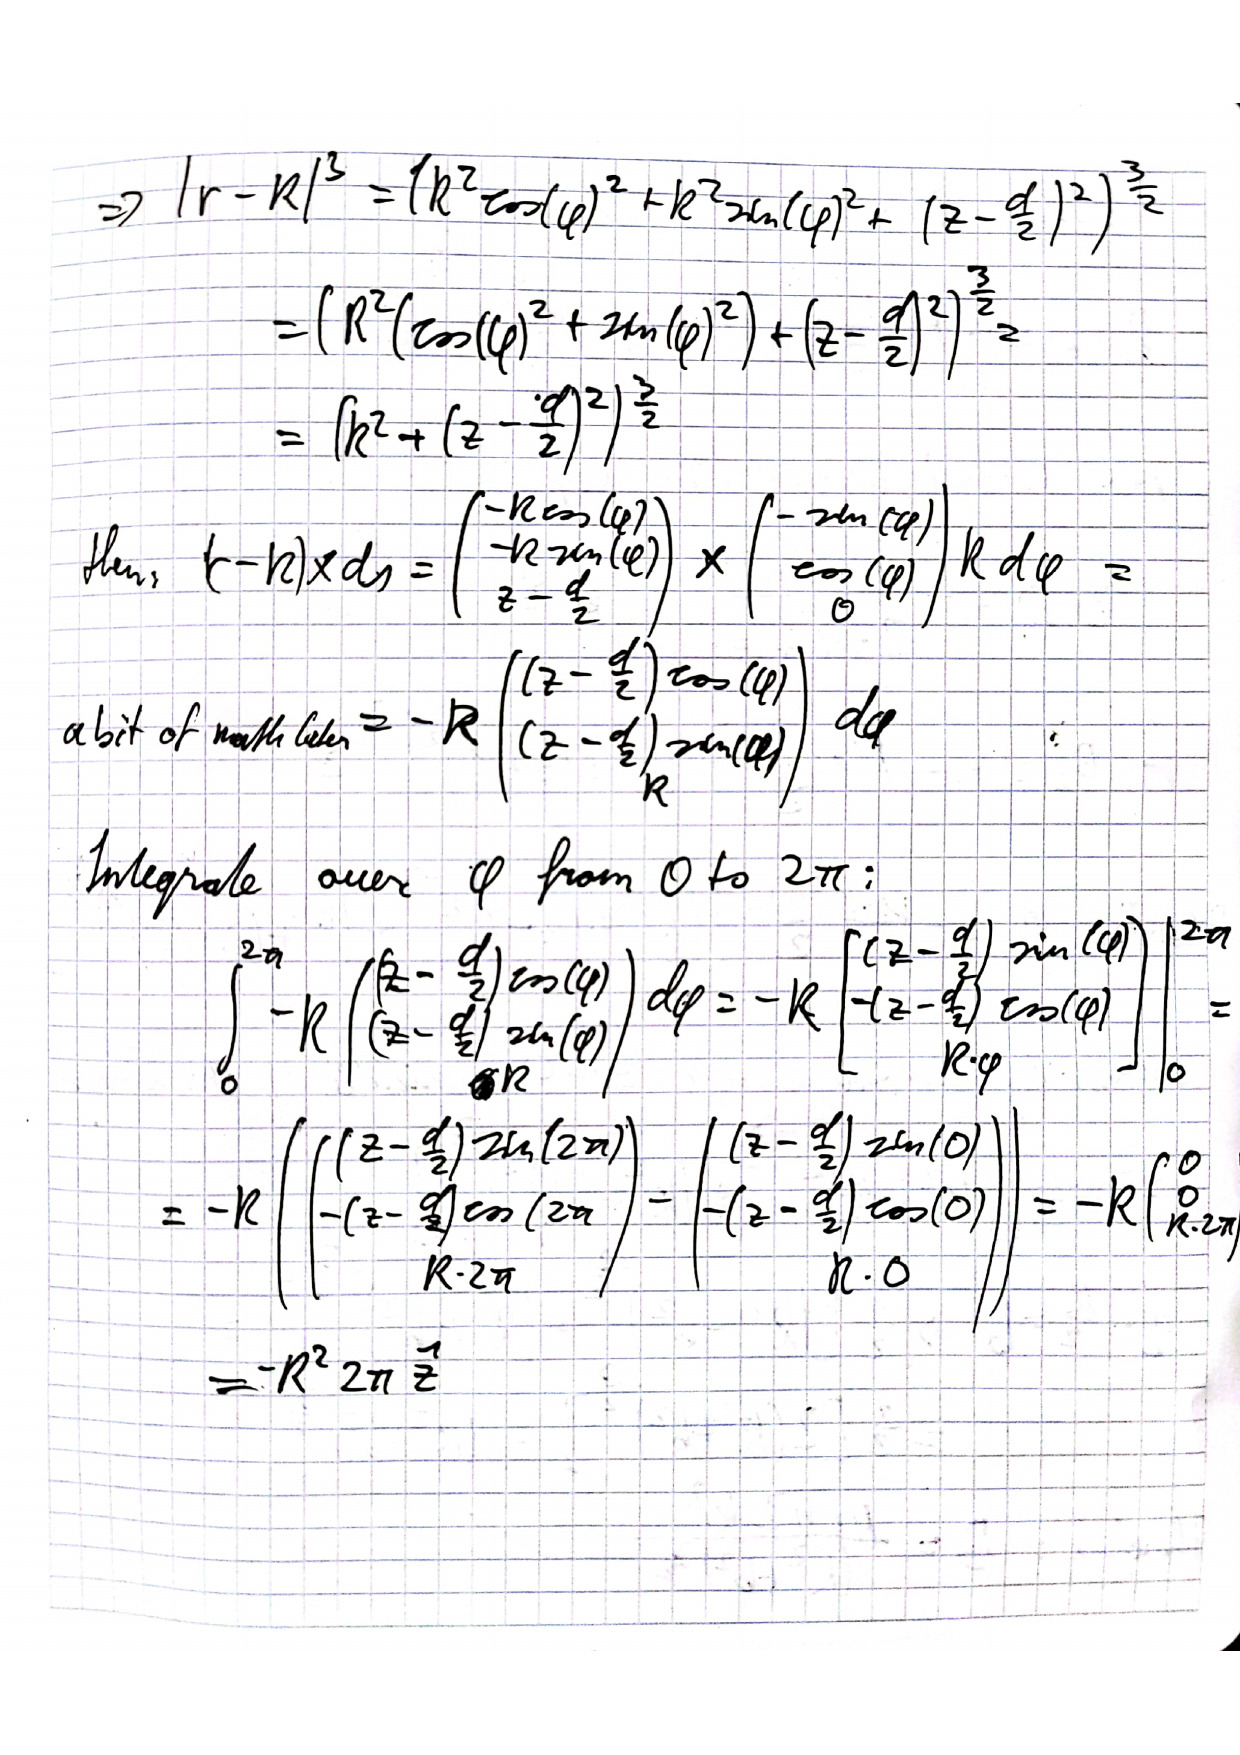 => |r - R|³ = (R² cos(φ)² + R² sin(φ)² + (z - d/2)²)^(3/2)
= (R² (cos(φ)² + sin(φ)²) + (z - d/2)²)^(3/2) =
= (R² + (z - d/2)²)^(3/2)
then: (r - R) × ds = (-R cos(φ), -R sin(φ), z - d/2) × (-sin(φ), cos(φ), 0) R dφ =
a bit of math later = -R ((z - d/2) cos(φ), (z - d/2) sin(φ), R) dφ
Integrate over φ from 0 to 2π:
∫₀^2π -R ((z - d/2) cos(φ), (z - d/2) sin(φ), R) dφ = -R [(z - d/2) sin(φ), -(z - d/2) cos(φ), R·φ] |₀^2π =
= -R (((z - d/2) sin(2π), -(z - d/2) cos(2π, R·2π) - ((z - d/2) sin(0), -(z - d/2) cos(0), R·0)) = -R (0, 0, R·2π)
= -R² 2π ẑ